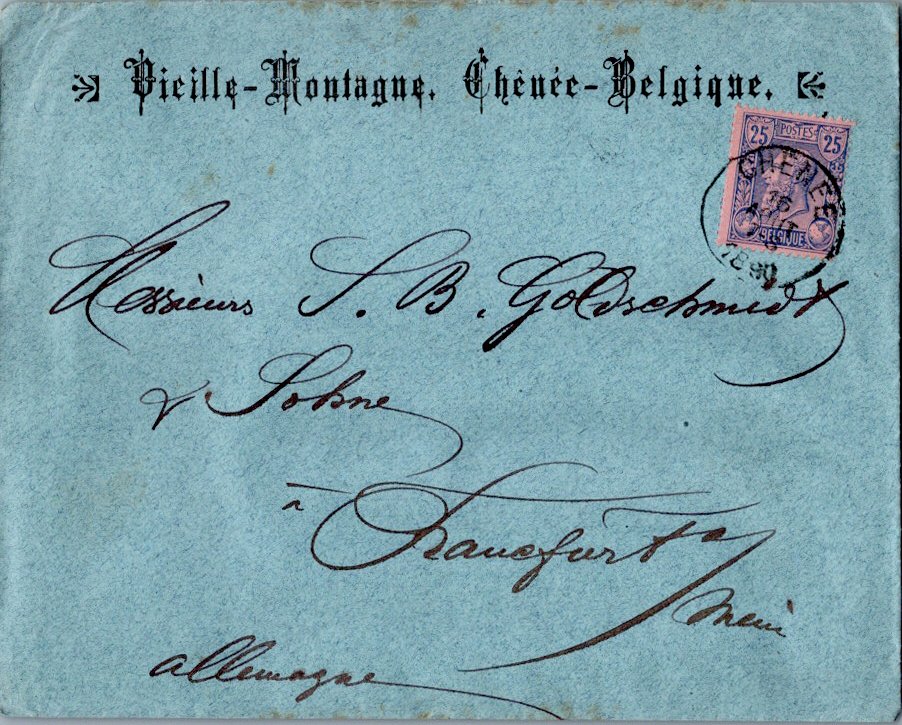 Vieille-Montagne. Chênée-Belgique.
25 POSTES 25
BELGIQUE
CHÊNÉE
AOUT
1890
Messieurs S. B. Goldschmidt
& Sohne
à Francfurt a/
Mein
allemagne